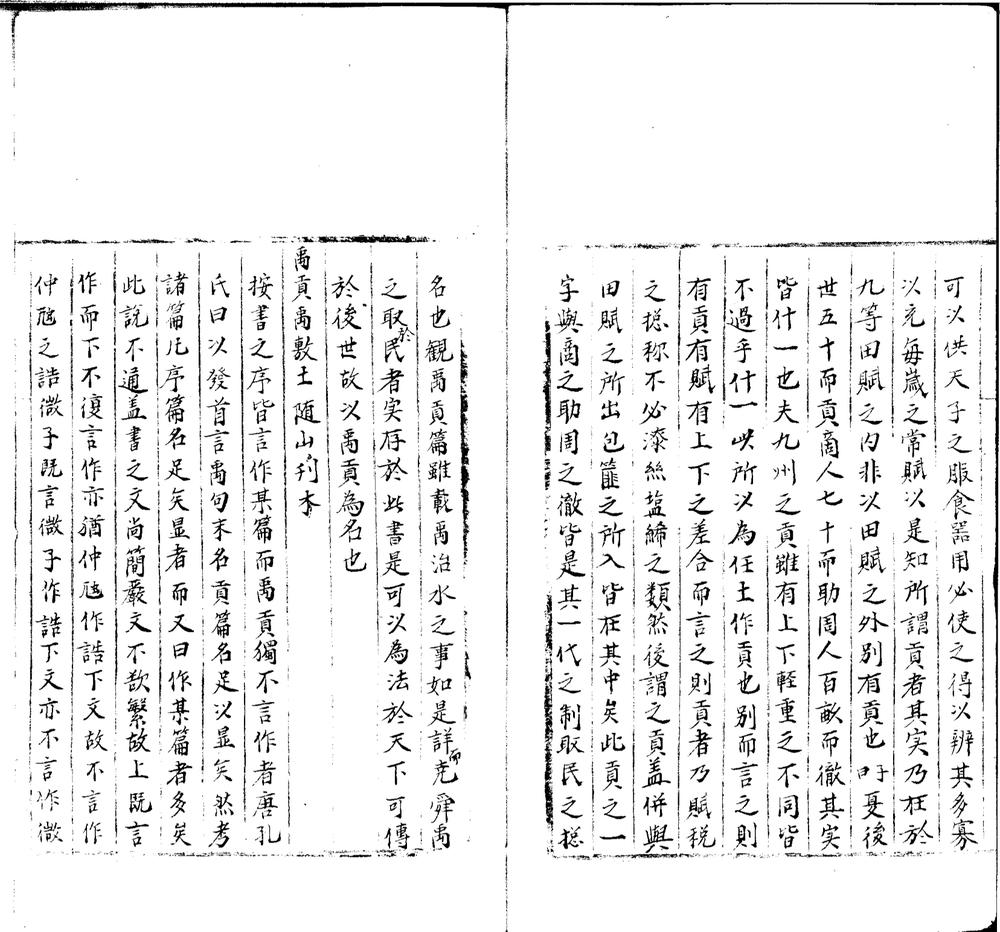 可以供天子之服食器用必使之得以辨其多寡
以充每歲之常賦以是知所謂貢者其实乃在於
九等田賦之内非以田賦之外別有貢也吁夏後
世五十而貢商人七十而助周人百畝而徹其实
皆什一也夫九州之貢雖有上下軽重之不同皆
不過乎什一此所以為任土作貢也別而言之則
有貢有賦有上下之差合而言之則貢者乃賦税
之揔称不必漆絲塩絺之類然後謂之貢盖併與
田賦之所出包篚之所入皆在其中矣此貢之一
字與商之助周之徹皆是其一代之制取民之揔
名也觀禹貢篇雖載禹治水之事如是詳而尭舜禹
之取於民者实存於此書是可以為法於天下可傳
於後世故以禹貢為名也
禹貢禹敷土随山刋木
按書之序皆言作某篇而禹貢獨不言作者唐孔
氏曰以發首言禹句末名貢篇名足以显矣然考
諸篇凡序篇名足矣显者而又曰作某篇者多矣
此說不通盖書之文尚簡嚴文不欲繁故上既言
作而下不復言作亦猶仲虺作誥下文故不言作
仲虺之誥微子既言微子作誥下文亦不言作微